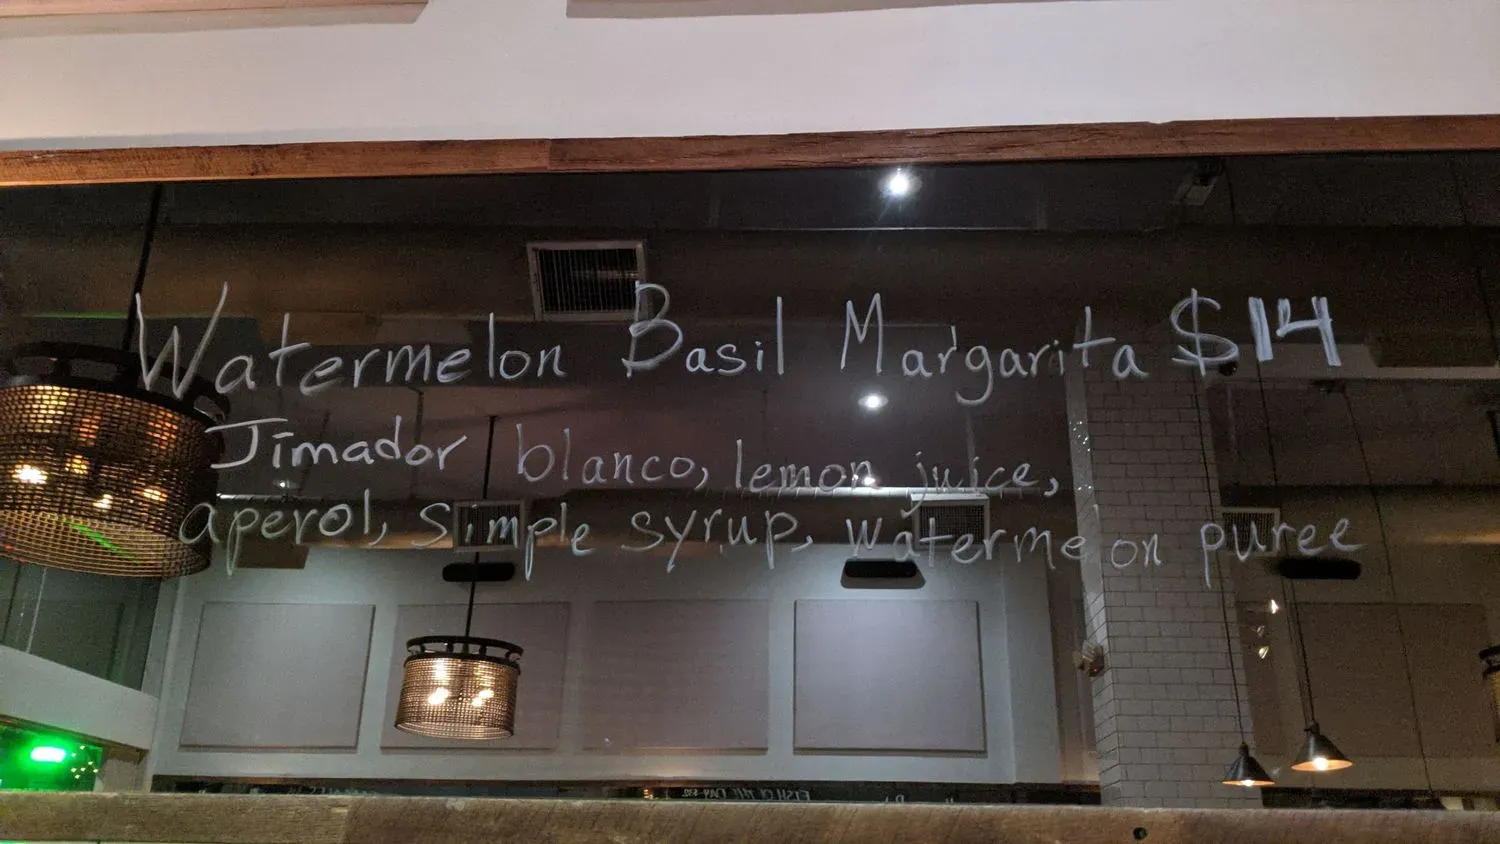 Watermelon Basil Margarita $14
Jimador blanco, lemon juice,
aperol, simple syrup, watermelon puree
FISH OF THE DAY